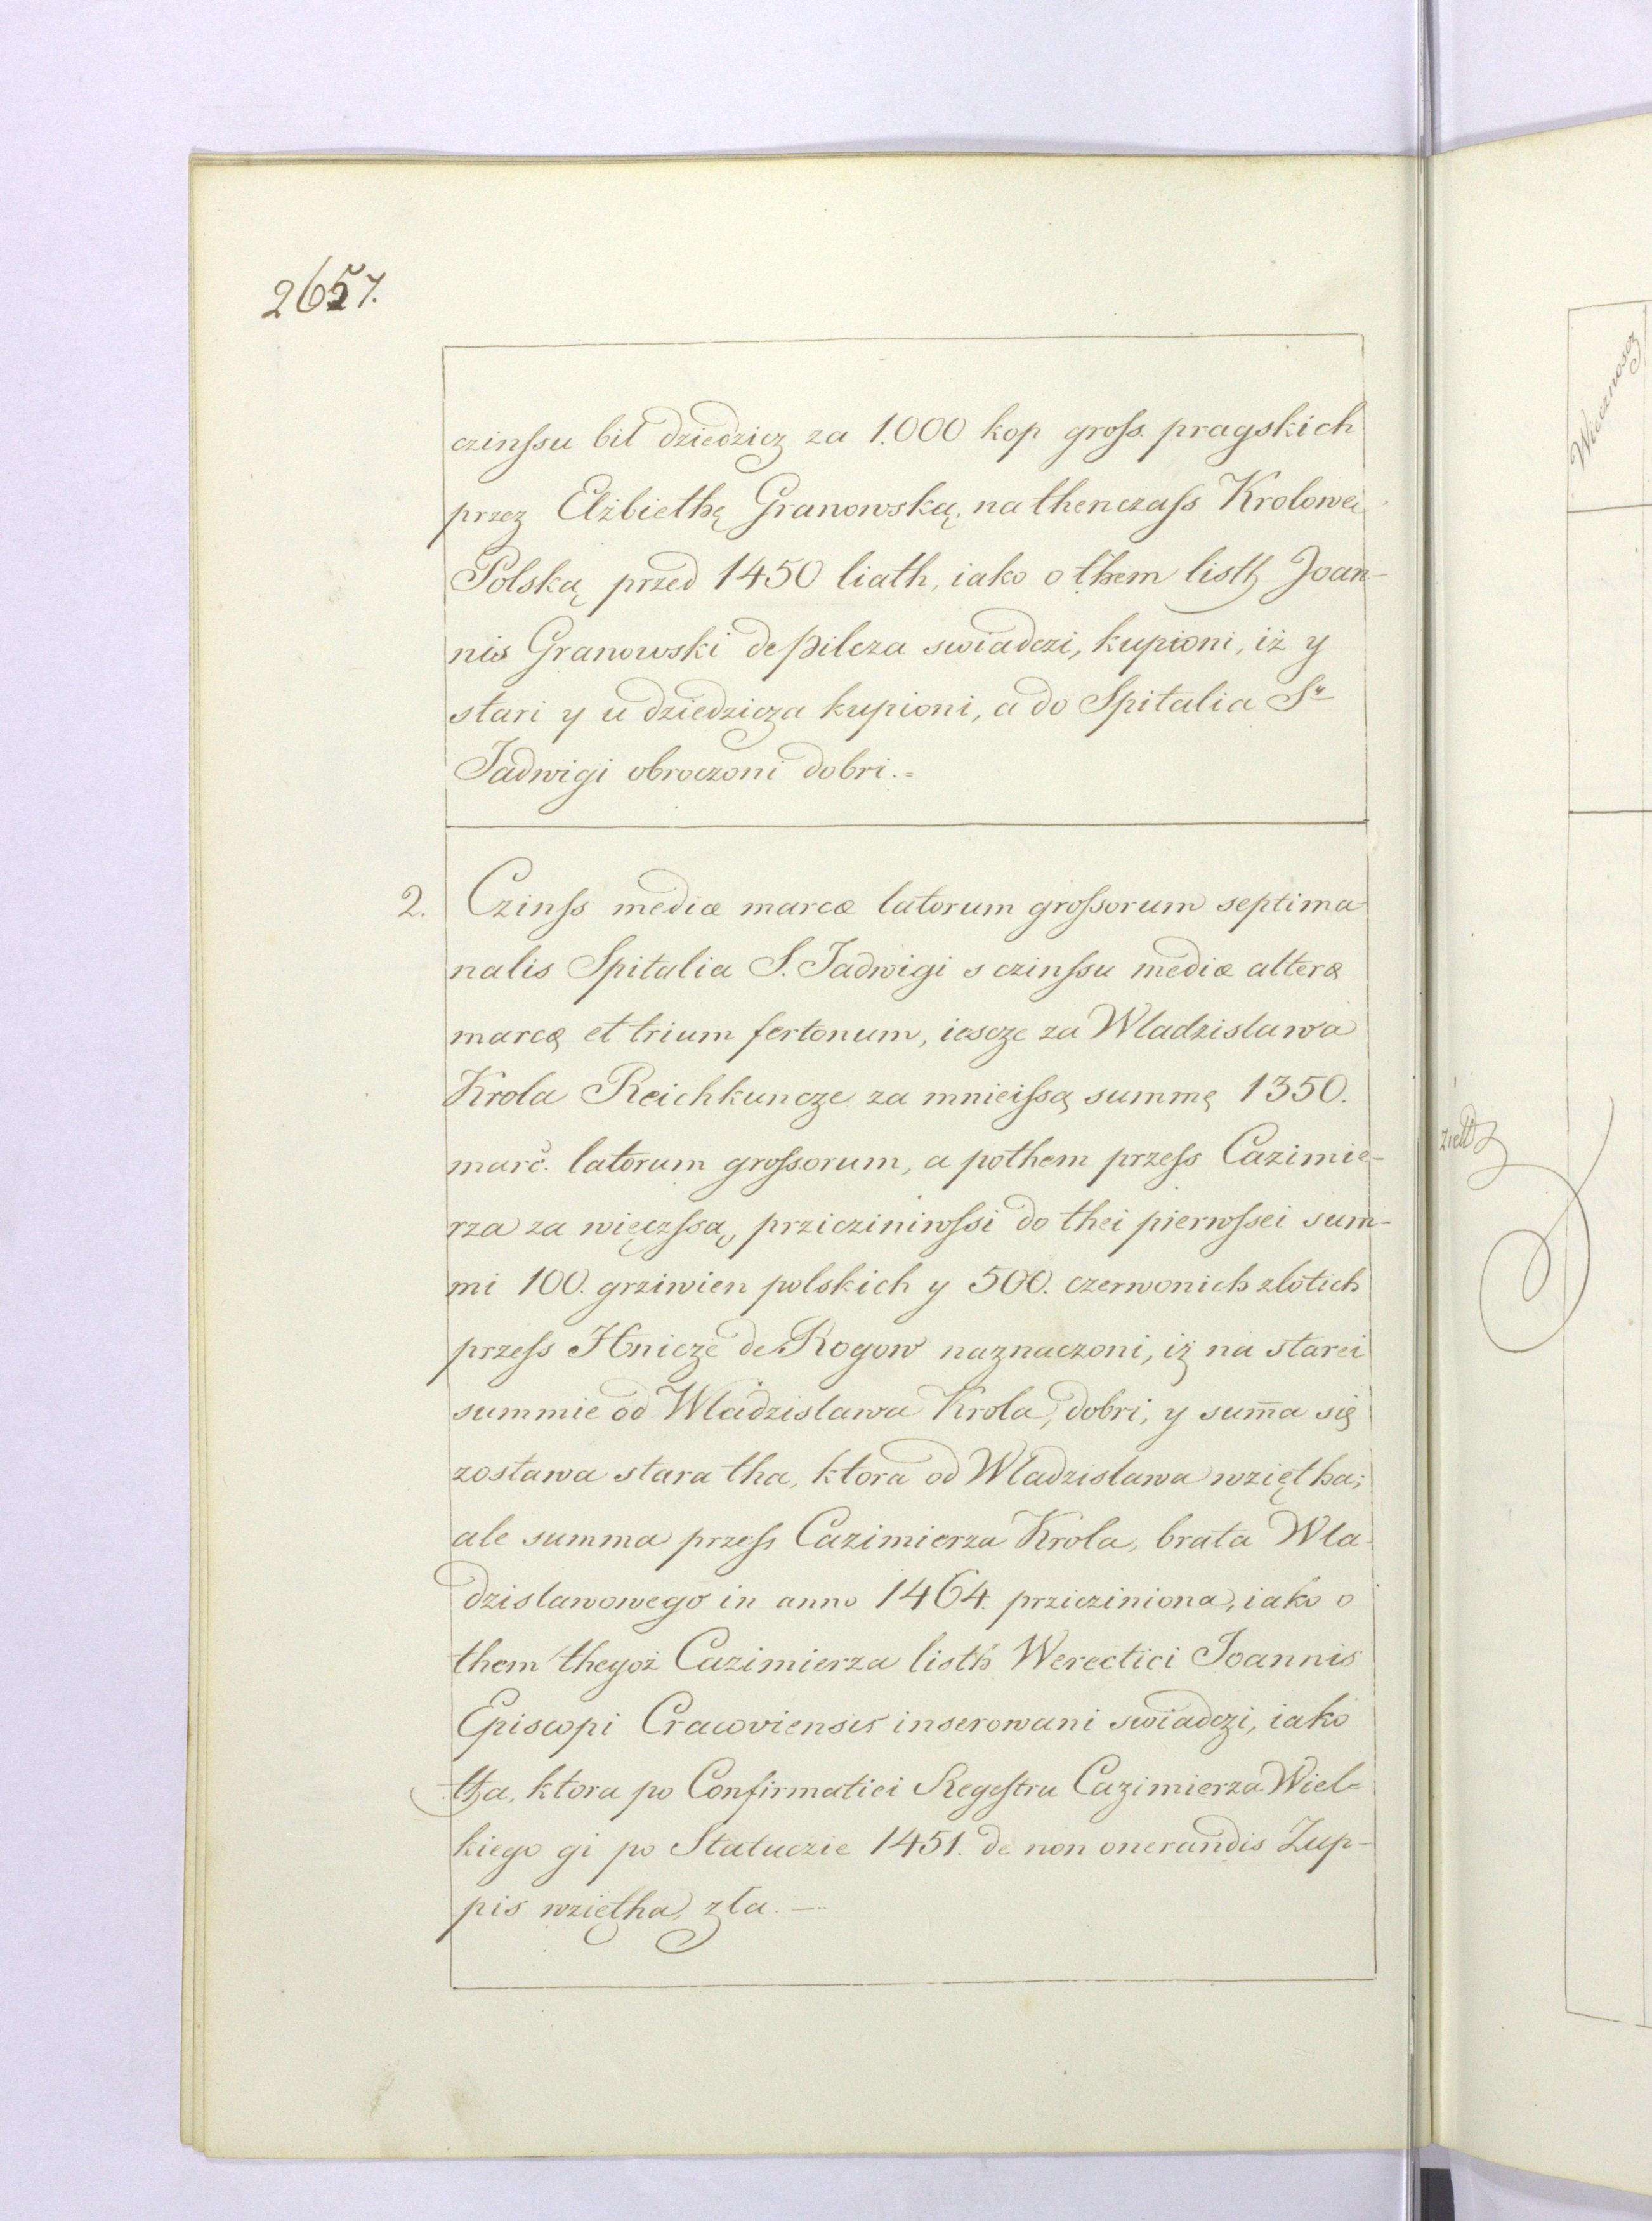 2657.
czinſsu bił dziedzicz za 1.000 kop groſs. pragskich
przez Elżbiethę Granowską, na thenczaſs Krolową
Polską przed 1450 liath, iako o them listh Joan-
nis Granowski de Pilcza swiadczi, kupioni, iż y
stari y u dziedzicza kupioni, a do Spitalia Sᵗ
Jadwigi obroczoni dobri.=
2. Czinſs mediæ marcæ latorum groſsorum septima
nalis Spitalia S. Jadwigi s czinſsu mediæ alteræ
marcæ et trium fertonum, iescze za Wladzislawa
Krola Reichkuncze za mnieiſsą summę 1350.
marc̃. latorum groſsorum, a pothem przeſs Cazimie-
rza za więczſsą, prziczyniwſsi do thei pierwſsei sum-
mi 100. grziwien polskich y 500. czerwonich zlotich
przeſs Hnicze de Rogow naznaczoni, iż na starei
summie od Wladzislawa Krola, dobri, y sum̃a się
zostawa stara tha, ktora od Wladzislawa wziętha;
ale summa przeſs Cazimierza Krola, brata Wla-
dzislawowego in anno 1464. prziciziniona, iako o
them thegoż Cazimierza listh Werectici Joannis
Episcopi Cracoviensis inserowani swiadczi, iako
tha, ktora po Confirmatiei Regeſtru Cazimierza Wiel=
kiego gi po Statuczie 1451. de non onerandis Zup-
pis wziętha, zła. —
Wiecznoscz